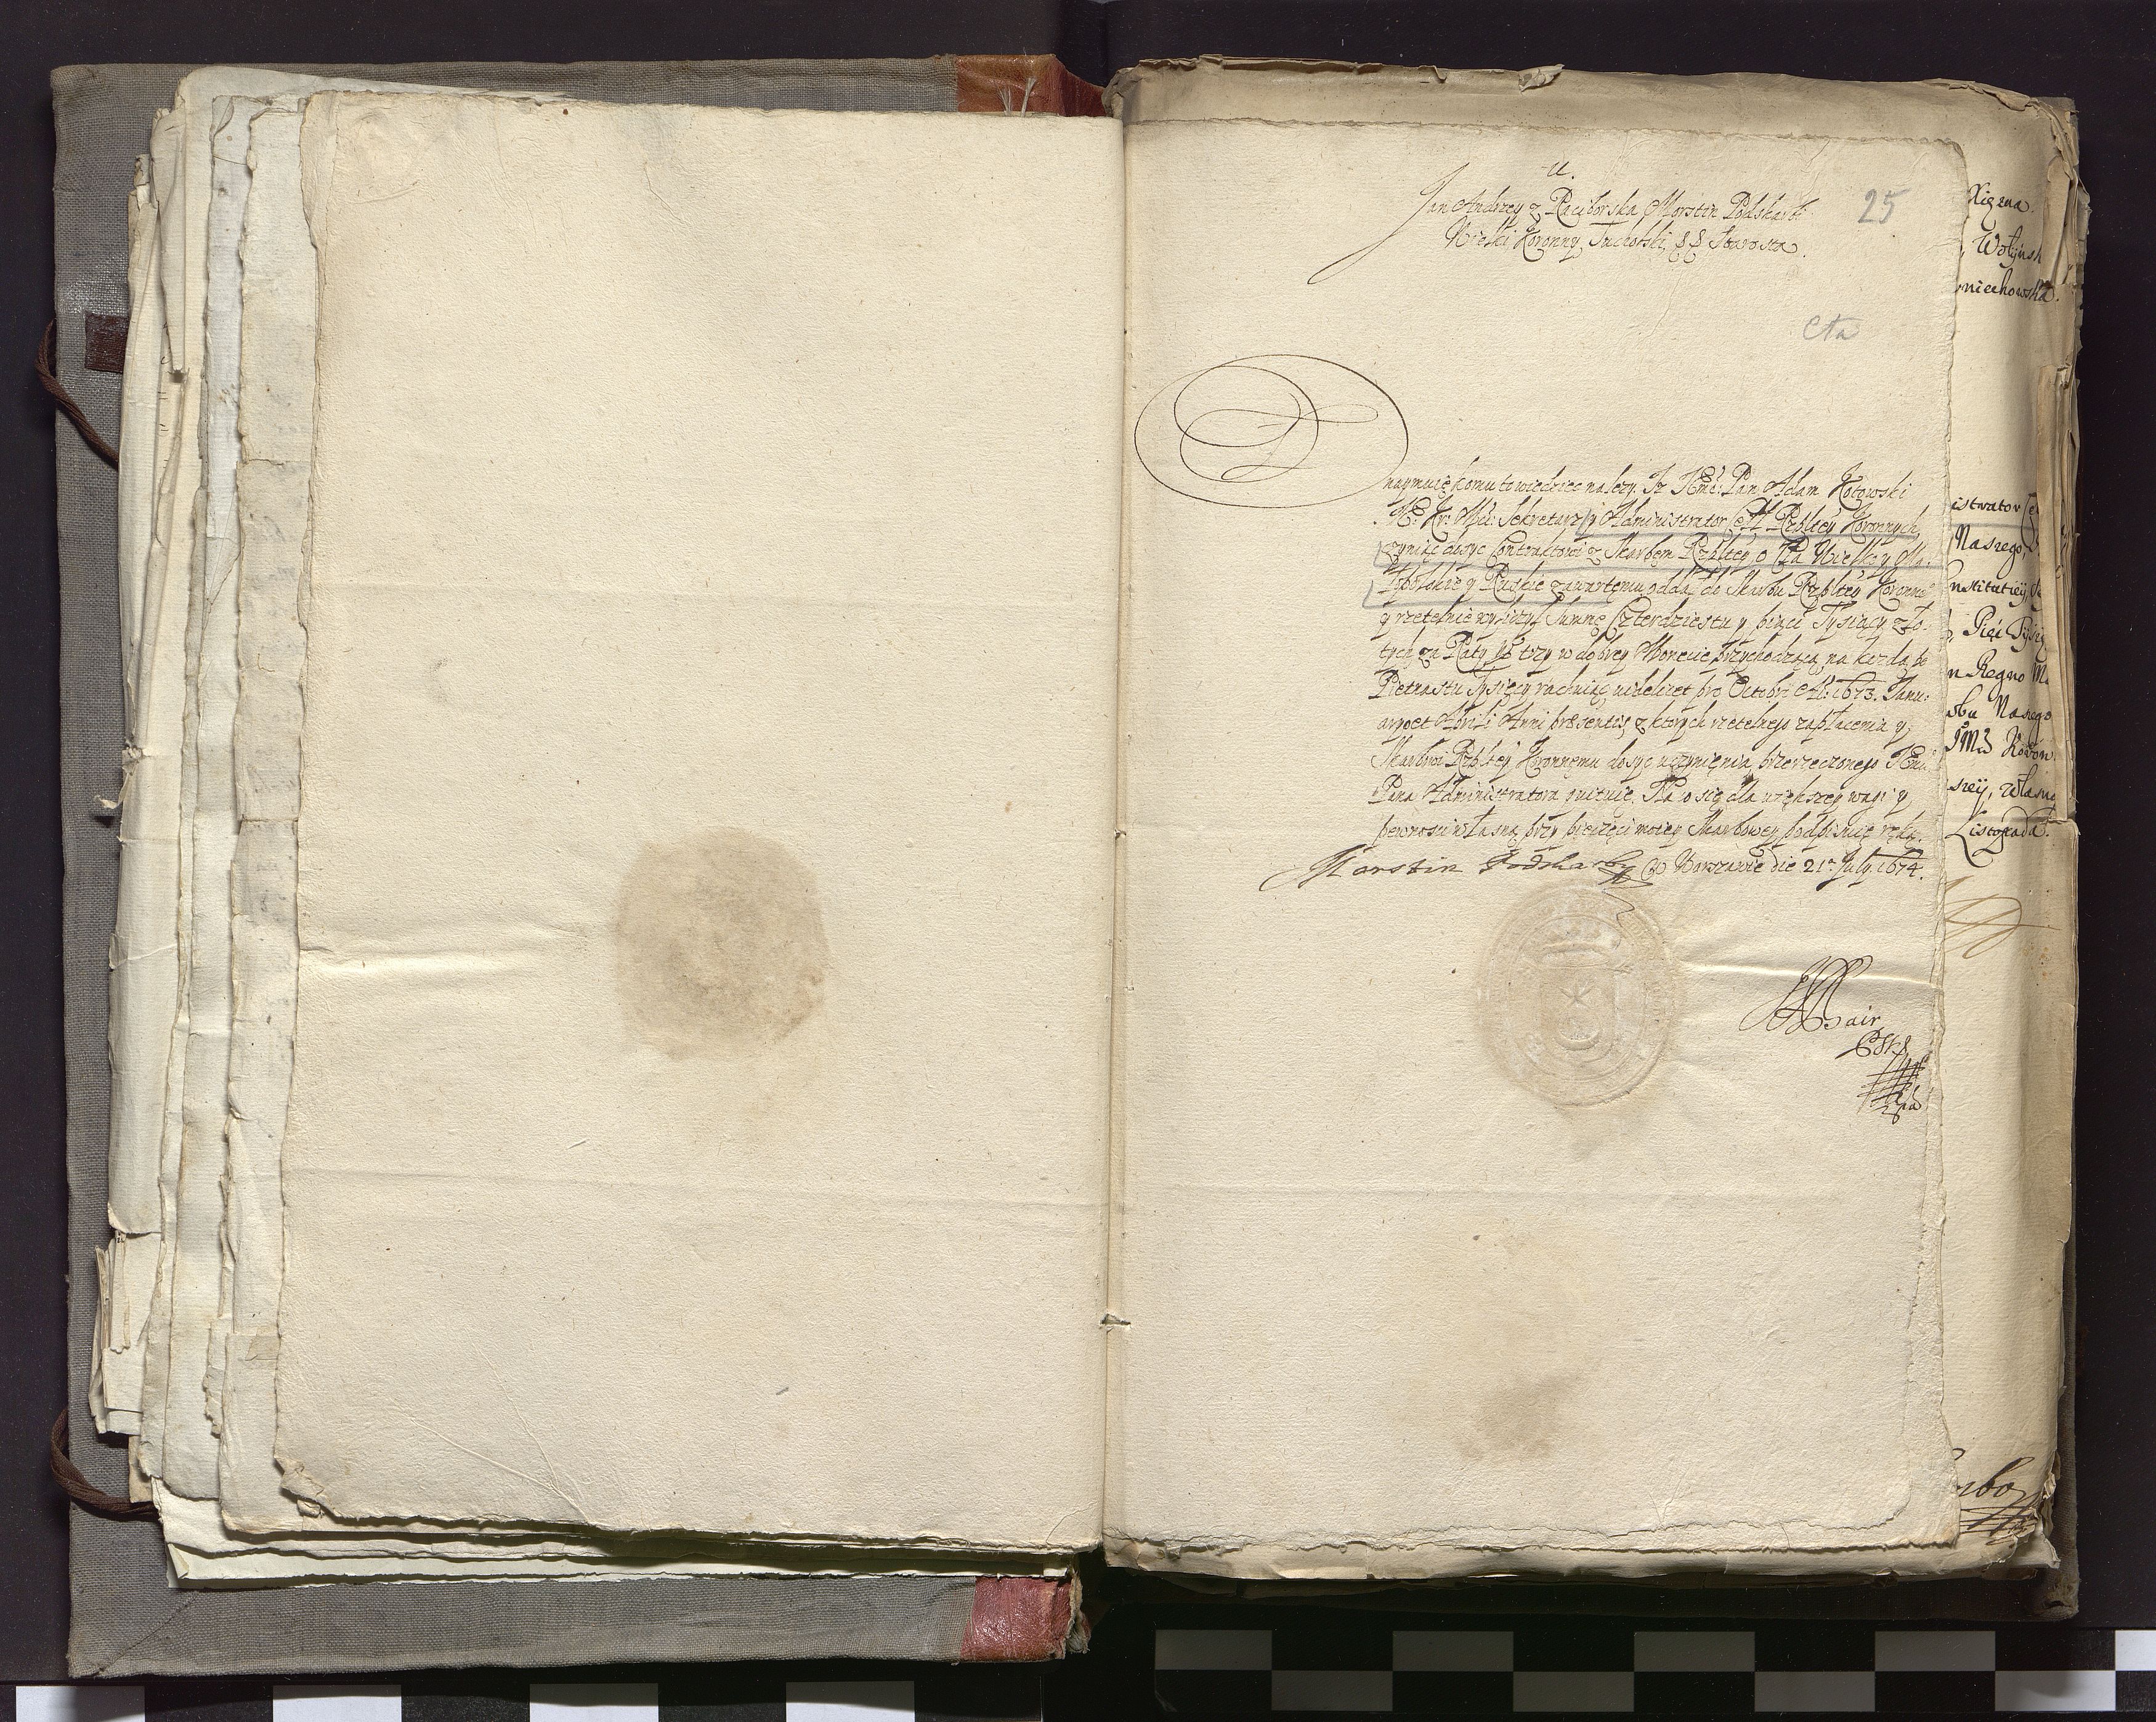 u.
Jan Andrzey z Raciborska Morstin Podskarbi
Wielki Koronny Tucholski, &c Starosta.
25
Cta
Oznaymuię komu to wiedziec nalezy. Iz JEmć: Pan Adam Kotowski
Kr: Mći: Sekretarz y Administrator Ceł Rzpltey Koronnych
czyniąc dosyc Contraktowi z Skarbem Rzpltey o Cła Wielk: y Ma:
łopolskie y Ruskie zawartemu, oddał do Skarbu Rzpltey Koronne:
y rzetelnie wyliczył Summę Czterdziestu y pięci Tysięcy zło:
tych za Raty trzy w dobrey Monecie przychodzącą na kazdą po
Pietnastu Tysięcy rachuiąc videlicet pro Octobri Ai: 1673. Janu:
ario et Aprili Anni præsentis z ktorych rzetelnego zapłacenia y
Skarbowi Rzpltey Koronnemu dosyc uczynienia przerzeczonego JEmci
Pana Administratora quituię. Na co się dla większey wagi y
pewnosci własną przy pieczęci moiey Skarbowey podpisuię ręką.
Morstin Podskarby W Warszawie die 21a July. 1674.
Xięzna
Wołyńsk
niechowska.
istrator
Naszego,
nstitutiey,
Pięć Tysię
n Regno
rbu Naszego
JMci Koron
szey, własną
Listopada.